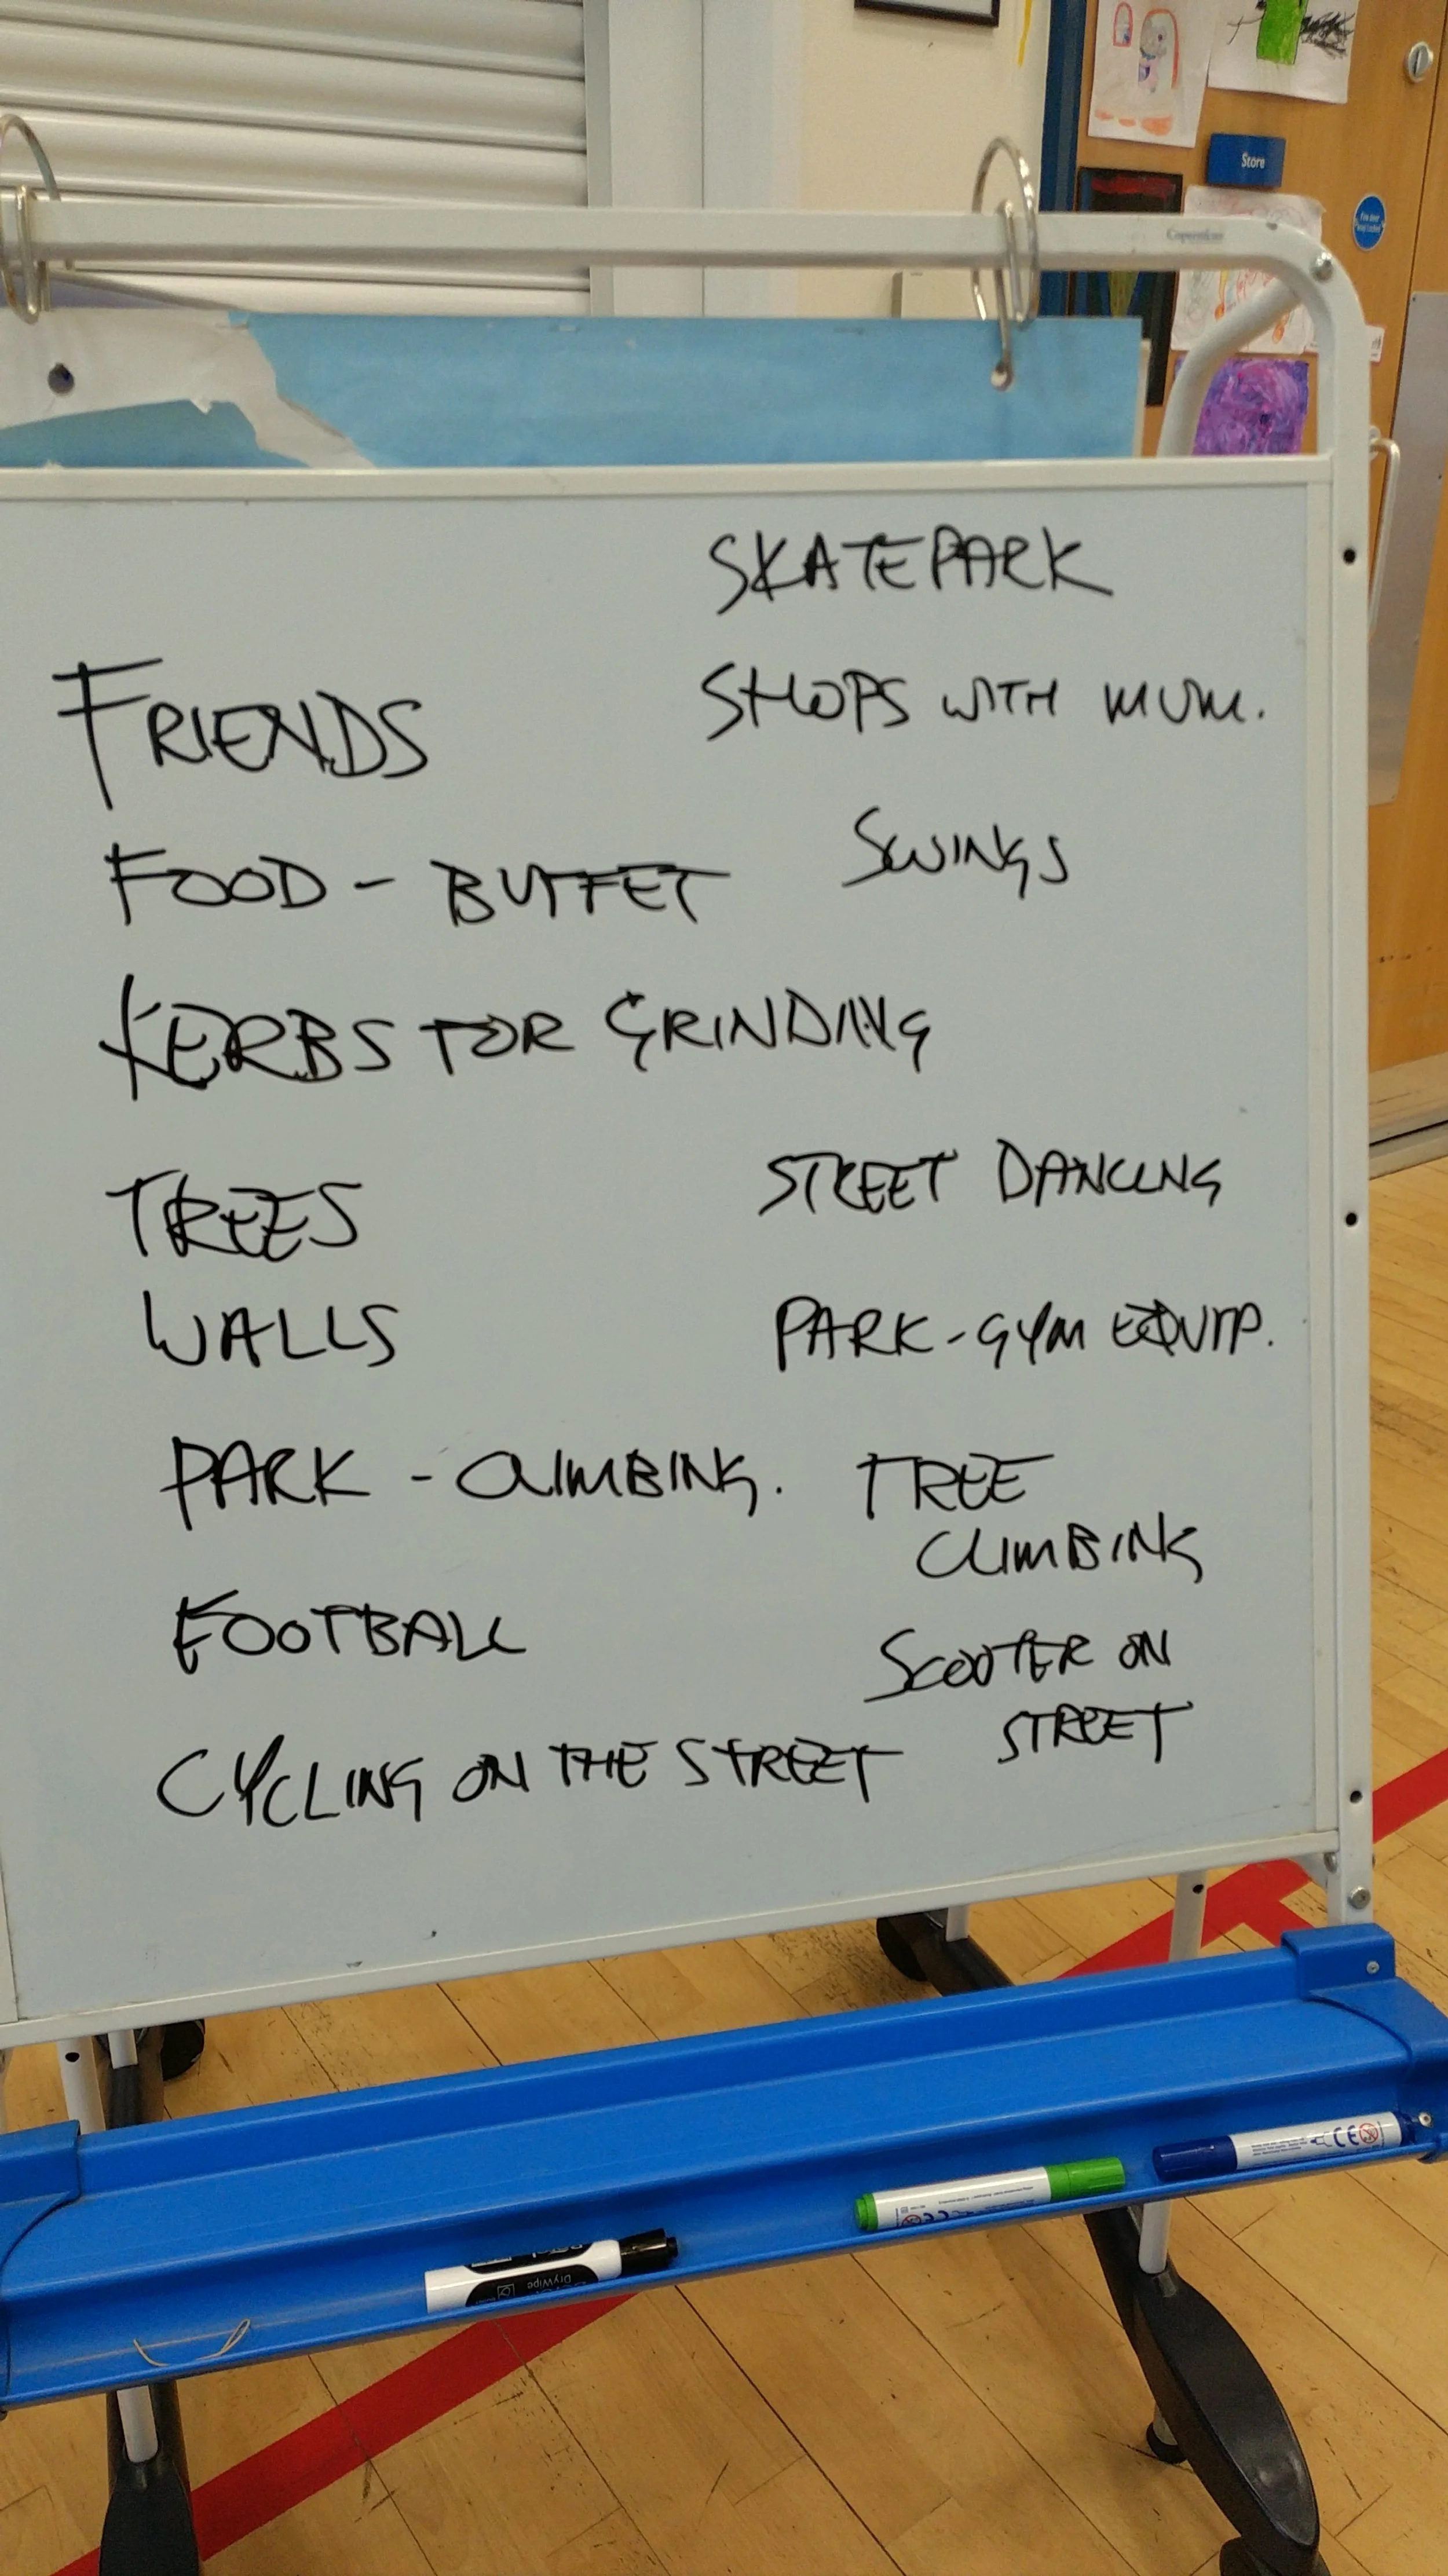 Store
Copernicus
SKATEPARK
SHOPS WITH MUM.
FRIENDS
SWINGS
FOOD - BUFFET
KERBS FOR GRINDING
STREET DANCING
TREES
WALLS
PARK - GYM EQUIP.
PARK - CLIMBING.
TREE
CLIMBING
FOOTBALL
SCOOTER ON
STREET
CYCLING ON THE STREET
CE
CE
DryWipe